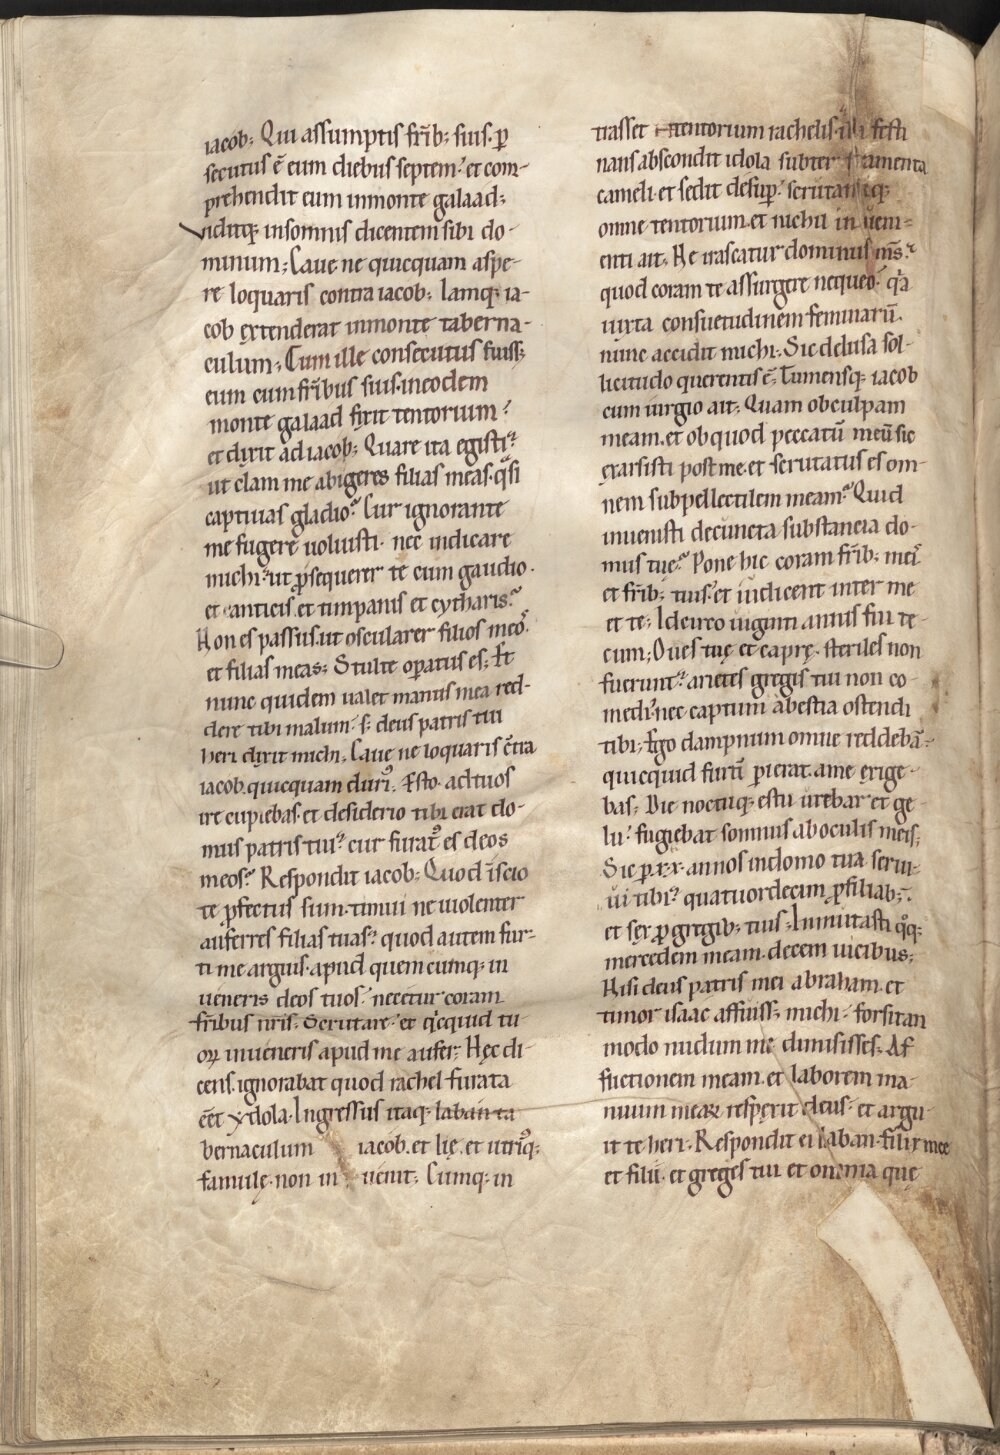 iacob; Qui assumptis fr̄ib; suis. ꝑ
secutus ē eum diebus septem. et com-
prehendit eum inmonte galaad;
viditq; insomnis dicentem sibi do-
minum; Caue ne quicquam aspe-
re loquaris contra iacob; Iamq; ia-
cob extenderat inmonte taberna-
culum; Cum ille consecutus fuiss;
eum cum fr̄ibus suis. ineodem
monte galaad fixit tentorium.
et dixit ad iacob; Quare ita egisti?
ut clam me abigeres filias meas. q̄si
captiuas gladio? Cur ignorante
me fugere uoluisti. nec indicare
michi. ut ꝓsequerer te cum gaudio.
et canticis. et timpanis et cytharis?
Non es passus. ut oscularer filios meos
et filias meas; Stulte oꝑatus es; Et
nunc quidem ualet manus mea red-
dere tibi malum. s; deus patris tui
heri dixit michi. Caue ne loquaris c̄tra
iacob. quicquam duri᷒. Esto. adtuos
ire cupiebas. et desiderio tibi erat do-
mus patris tui. cur furat᷒ es deos
meos? Respondit iacob; Quod īscio
te ꝓfectus sum. timui ne uiolenter
auferres filias tuas. quod autem fur-
ti me arguis. apud quemcumq; in
ueneris deos tuos. necetur coram
fr̄ibus nr̄is; Scrutare. et qͥcquid tu-
oꝝ inueneris apud me aufer; Hęc di-
cens. ignorabat quod rachel furata
eēt ydola. Ingressus itaq; laban ta
bernaculum iacob. et lię. et utriq᷒;
famulę. non in uenit. Cumq; in
trasset tentorium rachelis. illa festi
nans abscondit idola subter stramenta
cameli. et sedit desuꝑ. scrutantiq;
omne tentorium. et nichil in ueni-
enti ait; Ne irascatur dominus m̄s.
quod coram te assurgere nequeo. qͥa
iuxta consuetudinem feminarū.
nunc accidit michi; Sic delusa sol-
licitudo querentis ē; Tumensq; iacob
cum iurgio ait; Quam obculpam
meam. et obquod peccatū meū sic
exarsisti post me. et scrutatus es om-
nem subpellectilem meam? Quid
inuenisti decuncta substancia do-
mus tuę? Pone hic coram fr̄ib; meis
et fr̄ib; tuis. et iudicent inter me
et te; Idcirco uiginti annis fui te-
cum; Oues tuę et caprę. steriles non
fuerunt. arietes gregis tui non co-
medi. nec captum abestia ostendi
tibi; Ego dampnum omne reddebā.
quicquid furti ꝑierat. ame exige-
bas; Die noctuq; estu urebar et ge-
lu. fugiebat somnus aboculis meis;
Sic ꝑ.xx. annos indomo tua serui-
ui tibi. quatuordecim ꝓfiliab;.
et sex ꝓ gregib; tuis; Inmutasti qͦq;
mercedem meam. decem uicibus;
Nisi deus patris mei abraham. et
timor isaac affuiss; michi. forsitan
modo nudum me dimisisses; Af
flictionem meam. et laborem ma-
nuum meaꝝ respexit deus. et argu-
it te heri. Respondit ei laban. filię meę
et filii. et greges tui et omnia quę